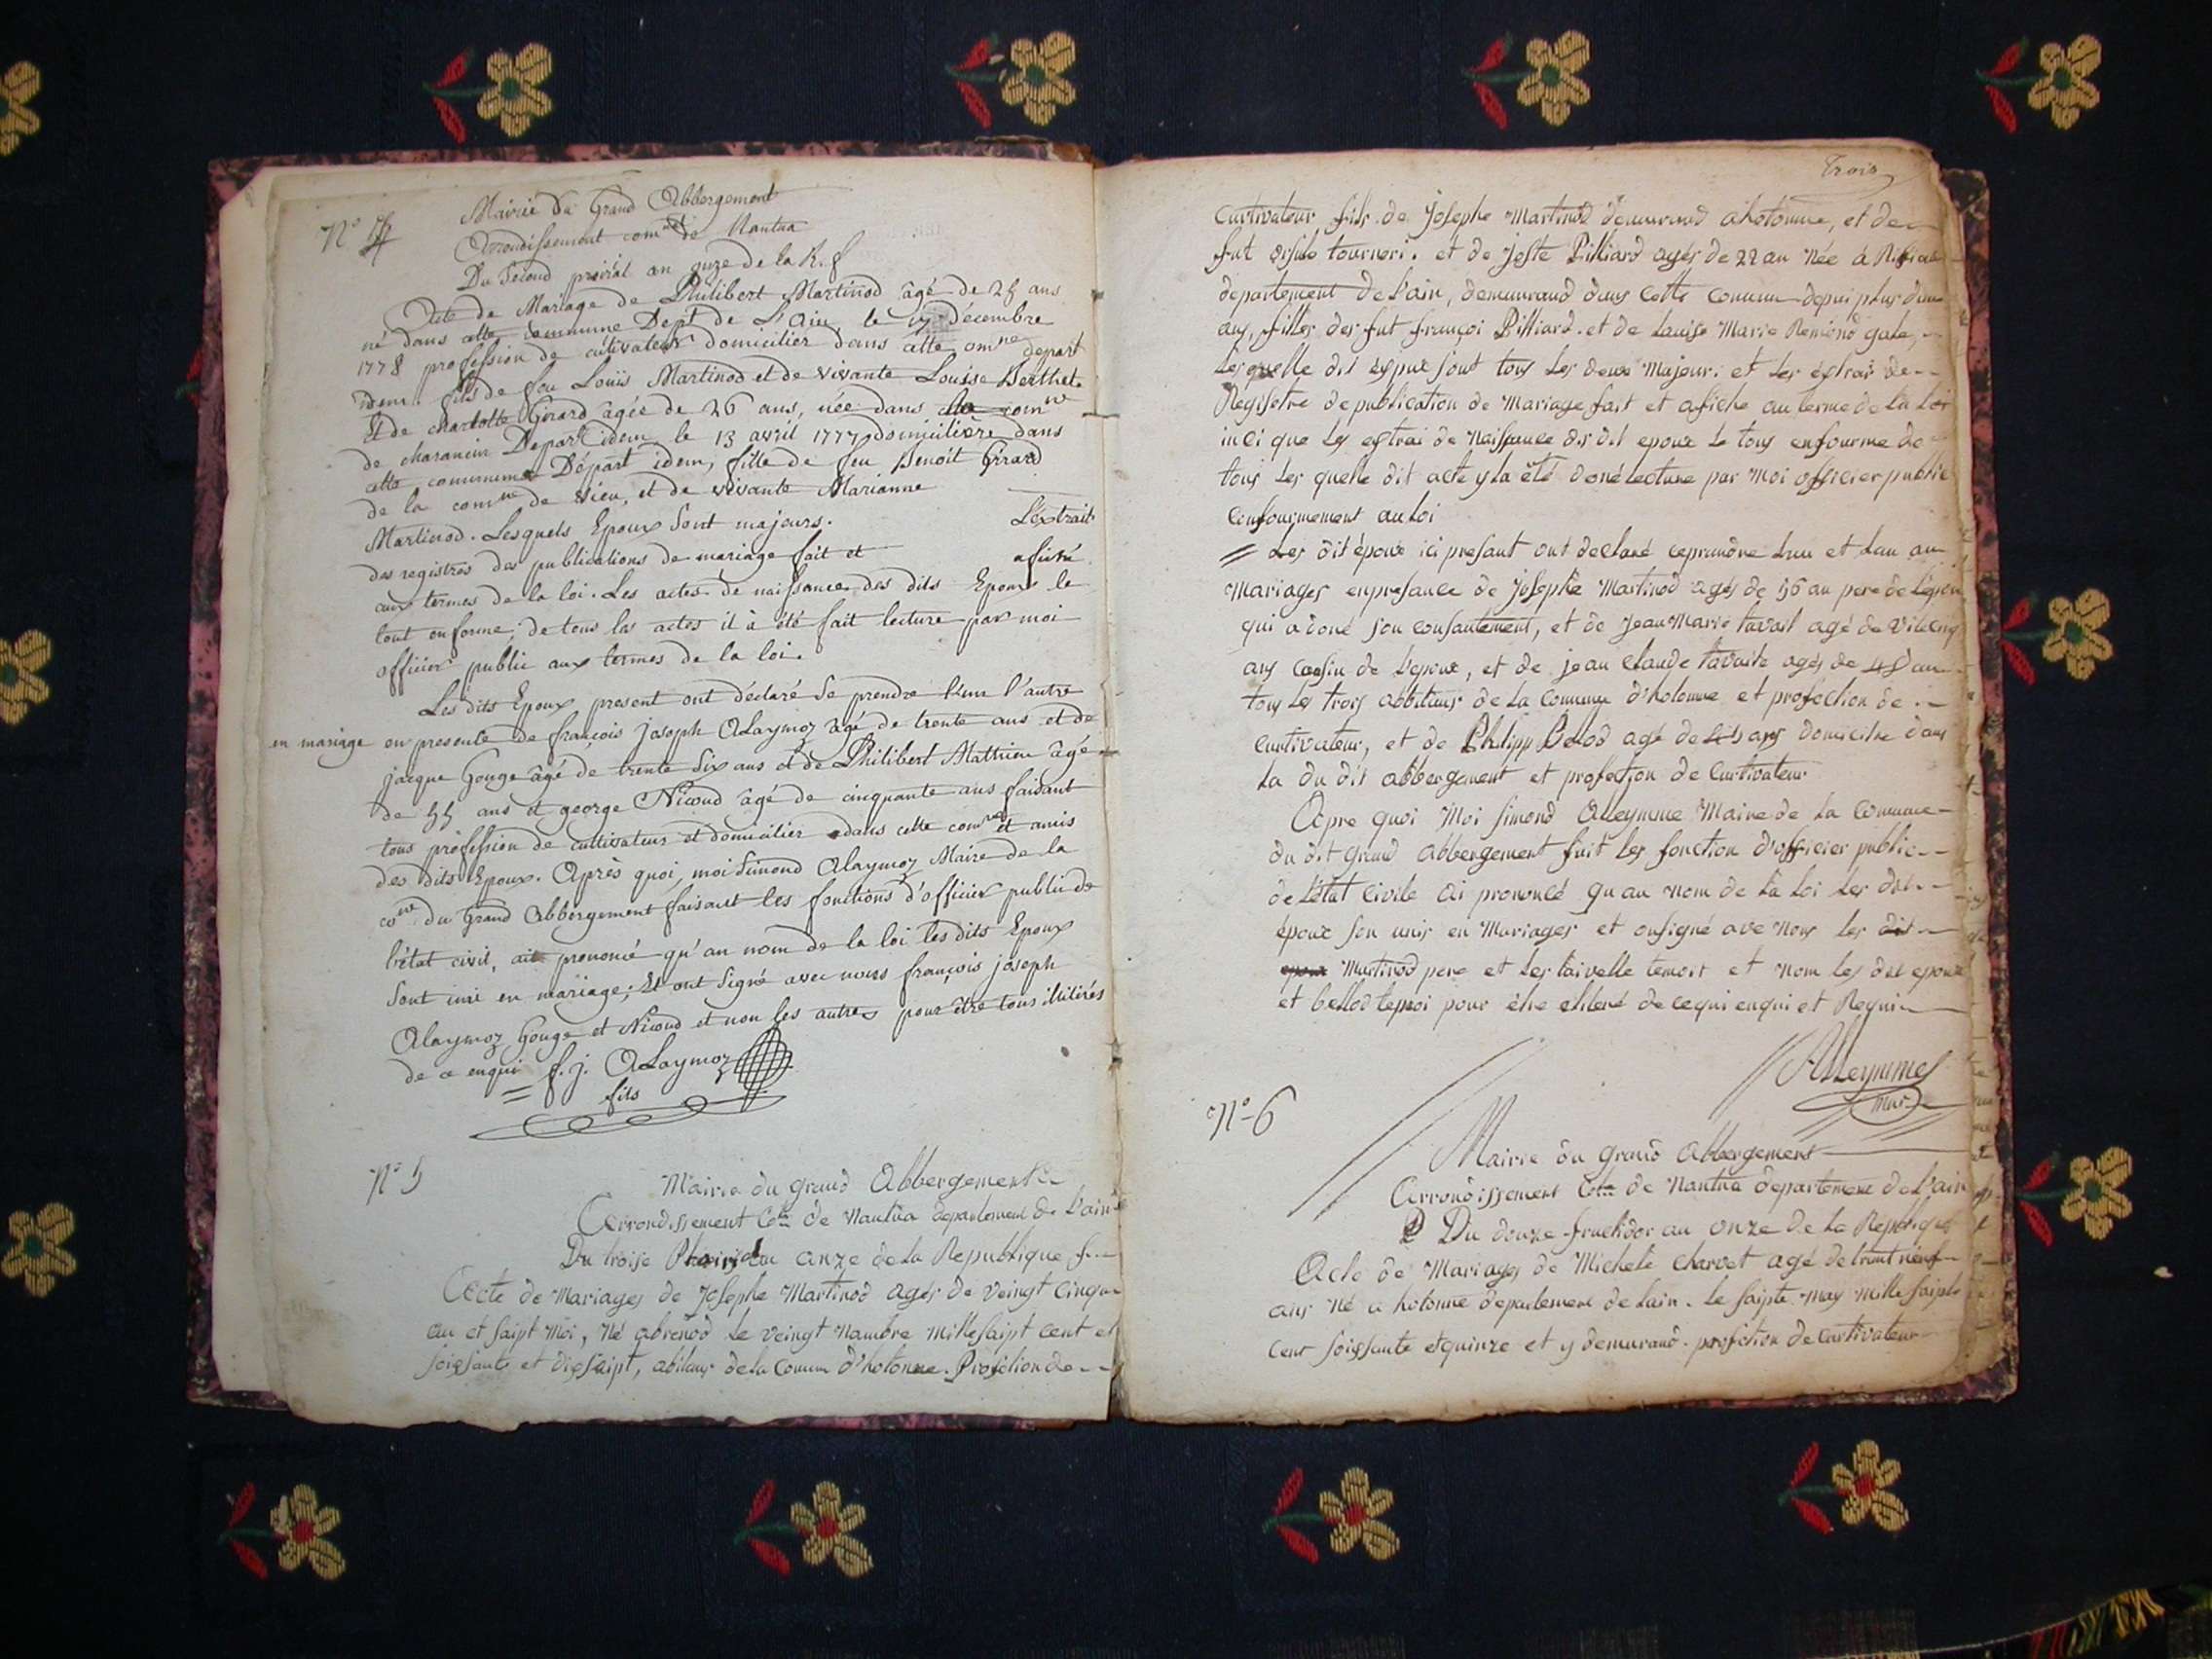 Mairie du Grand Abbergement
N° 4
Arrondissement com.al de Nantua
Du Second prairial an onze de la R. f
Acte de Mariage de Philibert Martinod âgé de 25 ans
né dans cette commune Dept de L'Ain, le 17 décembre
1778 profession de cultivateur domicilier dans cette com.ne depart
idem. fils de feu Louis Martinod et de vivante Louise Berthet.
Et de charlotte Girard âgée de 26 ans, née dans com.ne
de charancin Depart idem le 13 avril 1777 domiciliere dans
cette commune Départ idem, fille de feu Benoit Girard
de la com.ne de vieu, et de vivante Marianne
Martinod. Lesquels Epoux sont majeurs. L'extrait
des registres des publications de mariage fait et afiché
aux termes de la loi. Les actes de naissance des dits Epoux le
tout en forme; de tous les actes il à été fait lecture par moi
officier public aux termes de la loi.
Les dits Epoux present ont déclaré se prendre l'un l'autre
en mariage en presence de françois joseph Alaymoz âgé de trente ans et de
jacque Gouge âgé de trente six ans et de Philibert Mathieu âgé
de 55 ans et george Nicoud âgé de cinquante ans faisant
tous profession de cultivateurs et domicilier dans cette com.ne et amis
des dits Epoux. Après quoi, moi Simond Alaymoz Maire de la
co.ne du Grand Abbergement faisant les fonctions d'officier public de
l'état civil, ait prononcé qu'au nom de la loi les dits Epoux
sont uni en mariage; Et ont signé avec nous françois joseph
Alaymoz Gouge et Nicoud et non les autres pour être tous illitérés
de ce enqui f. j. ALaymoz
fils
N° 5
Mairie du grand Abbergement
Arrondissement Co.al de Nantua departement de L'ain
Du troise an onze de la Republique f.
Acte de Mariages de Josephe Martinod agés de veingt cinq
an et saipt moi, Né abrenod Le veingt Nambre mille saipt cent et
soissante et dissaipt, abitans de la Comun d'hotonne. Profession de
Trois
Curtivateur fils de Josephe Martinod demeurand a hotonne, et de
fut tourneri. et de Jeste Billiard agés de 22 an Née à
departement de L'ain, demeurand dans Cette Comun depui plus dun
ans, filles des fut françoi Billiard. et de Lauise Marie Remond gale,
Lesquelle dit Epoux sont tous Les deux Majeur. et Les extrai de
Registre de publication de Mariage fait et afiche au terme de La Loi
inci que Les extrai de Naissance des dit epoux Le tous enfourme de
tous Les quelle dit acte y la été doné Lecture par Moi officier public
Confourmement au Loi
Les dit époux ici presant ont declaré ceprandre Lun et Lau an
Mariages enpresance de Josephe Martinod agés de 56 an pere de L'epoux
qui a doné son consantement, et de Jean Marie tavail agé de
ans Cosin de L'epoux, et de jean Claude tavaile agés de 48 an
tous Les trois abbitans de La Commune d'hotonne et profection de
Curtivateur, et de Philipp Belod agé de ans domicilie dans
La du dit abbergement et profection de Curtivateur
Apre quoi Moi Simond Alleymme Maire de La Commune
du dit grand abbergement fait Les fonction d'officier public
de L'état Civile ai prononcé qu au Nom de La Loi Les dit
époux son unis en Mariages et onsigné ave Nous Les dit
Martinod pere et Les taivelle temoit et Nom Les dit epoux
et bellod temoi pour être de cequi enqui et Requi
Alleymme
Mair
N° 6
Mairie du grand Abbergement
Arrondissement Co.al de Nantua departement de L'ain
Du douze fructidor an onze de La Republique
Acte de Mariages de Michele Charvet agé de trant neuf
ans Né a hotonne departement de Lain. Le saipte May Mille saipte
cent soissante et quinze et y demurand. profection de Curtivateur